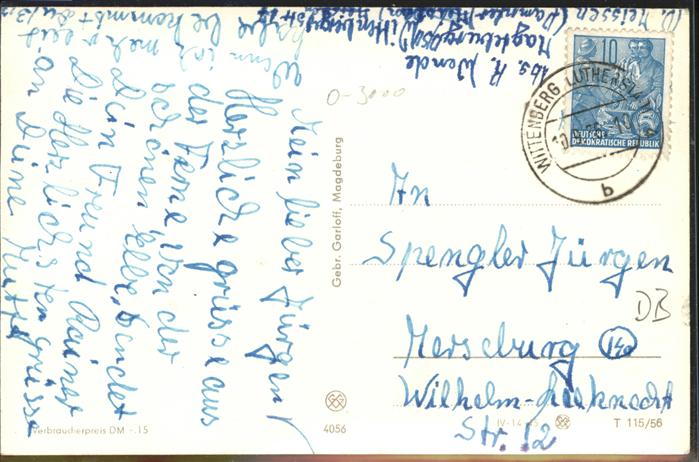 Mein lieber Jürgen!
Herzliche Grüsse aus
der Ferne, von der
schönen Elbe, sendet
Dein Freund Rainer
Die Herzlichsten Grüsse
an Deine Mutti
Wenn ich mehr Zeit
habe bekommst Du
Abs R. Wende
Magdeburg
Gebr. Garloff, Magdeburg
0-3000
10
DEUTSCHE
DEMOKRATISCHE REPUBLIK
WITTENBERG LUTHERSTADT
b
An
Spengler Jürgen
DB
Merseburg
Wilhelm-Lieknecht
Str. 12
Verbraucherpreis DM -.15
4056
IV-14-45
T 115/56